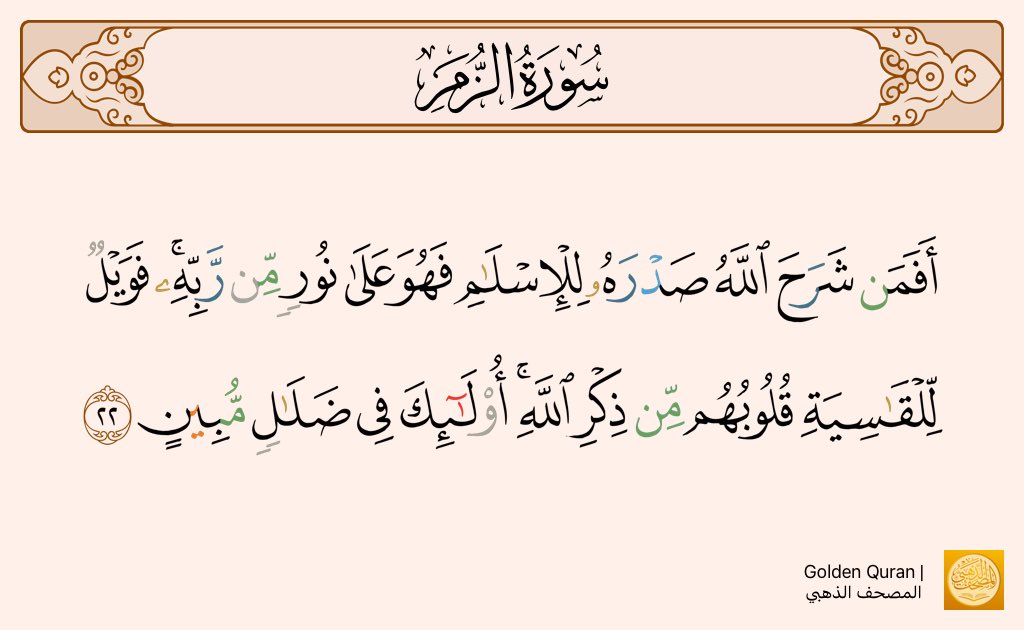 سُورَةُ الزُّمَرِ
أَفَمَن شَرَحَ ٱللَّهُ صَدْرَهُۥ لِلْإِسْلَـٰمِ فَهُوَ عَلَىٰ نُورٍ مِّن رَّبِّهِۦ ۚ فَوَيْلٌ
لِّلْقَـٰسِيَةِ قُلُوبُهُم مِّن ذِكْرِ ٱللَّهِ ۚ أُو۟لَـٰٓئِكَ فِى ضَلَـٰلٍ مُّبِينٍ ٢٢
Golden Quran |
المصحف الذهبي
المصحف الذهبي